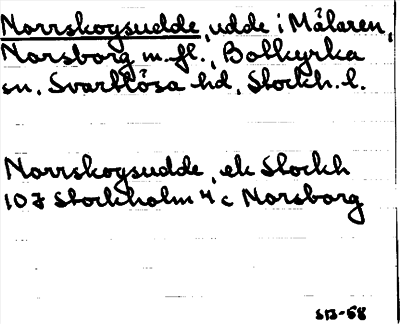 Norrskogsudde, udde i Mälaren,
Norsborg m.fl., Botkyrka
sn, Svartlösa hd, Stockh. l.
Norrskogsudde, ek Stockh
107 Stockholm 4 c Norsborg
SB-68